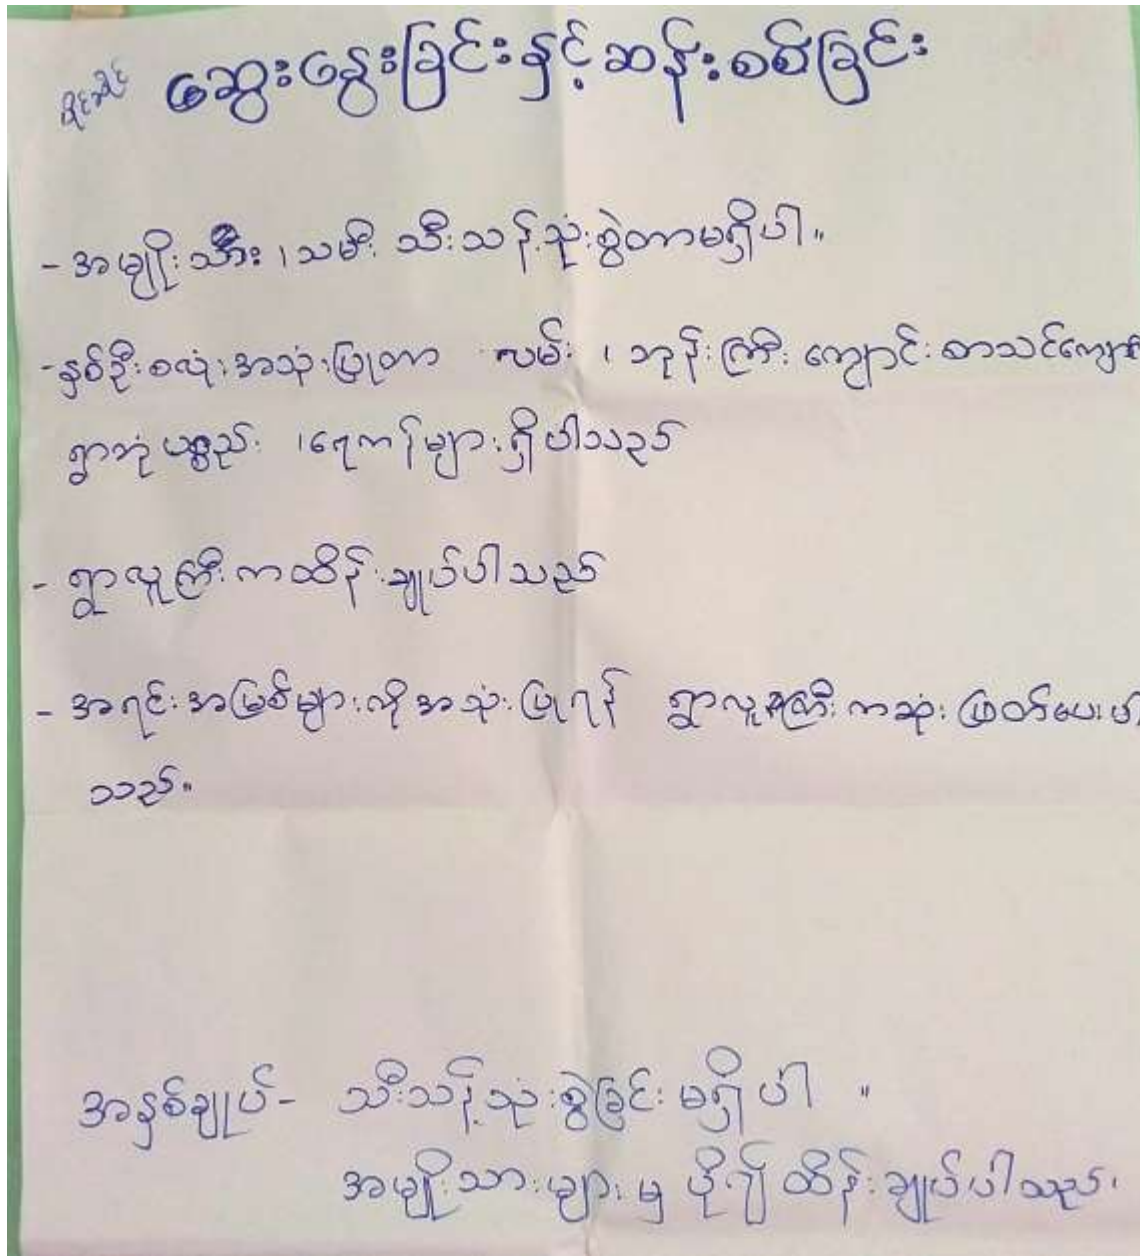 ဆွေးနွေးခြင်းနှင့်ဆန်းစစ်ခြင်း
- အမျိုးသား ၊သမီး သီးသန့်သုံးစွဲတာမရှိပါ။
- နှစ်ဦးစလုံးအသုံးပြုတာ လမ်း ၊ ဘုန်းကြီးကျောင်းစာသင်ကျောင်း
ရွာဘုံပစ္စည်း ၊ရေကန်များရှိပါသည်
- ရွာလူကြီးကထိန်းချုပ်ပါသည်
- အရင်းအမြစ်များကိုအသုံးပြုရန် ရွာလူကြီးကဆုံးဖြတ်ပေးပါ
သည်။
အနှစ်ချုပ်- သီးသန့်သုံးစွဲခြင်းမရှိပါ ။
အမျိုးသားများမှ ပိုဂျိထိန်းချုပ်ပါသည်၊